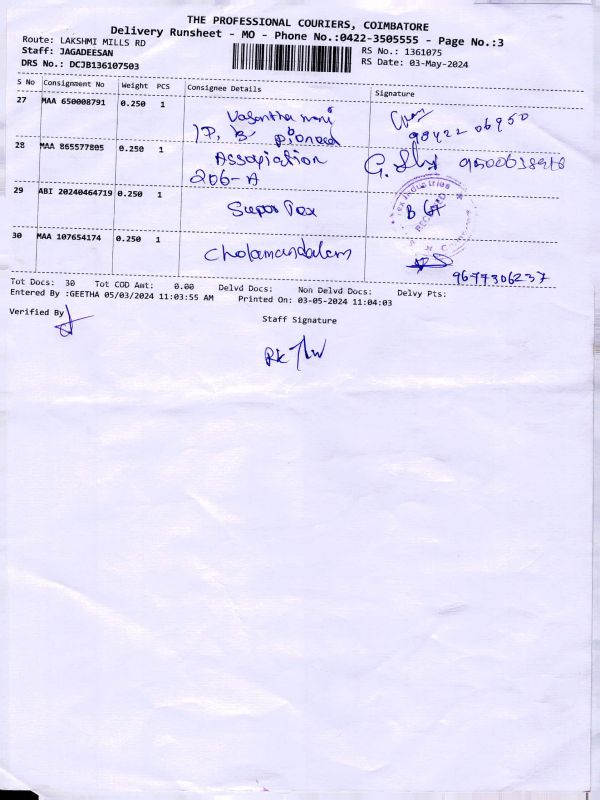 THE PROFESSIONAL COURIERS, COIMBATORE
Delivery Runsheet - MO - Phone No.:0422-3505555 - Page No.:3
Route: LAKSHMI MILLS RD
RS No.: 1361075
Staff: JAGADEESAN
RS Date: 03-May-2024
DRS No.: DCJB136107503
S No Consignment No Weight PCS Consignee Details Signature
27 MAA 650008791 0.250 1 Vasantha mani
98422 06950
28 MAA 865577805 0.250 1 Association
206-A
29 ABI 20240464719 0.250 1 Super Tex
Tex Industries
RECEIVED
30 MAA 107654174 0.250 1 Cholamandalam
9677306237
Tot Docs: 30 Tot COD Amt: 0.00 Delvd Docs: Non Delvd Docs: Delvy Pts:
Entered By :GEETHA 05/03/2024 11:03:55 AM Printed On: 03-05-2024 11:04:03
Verified By
Staff Signature